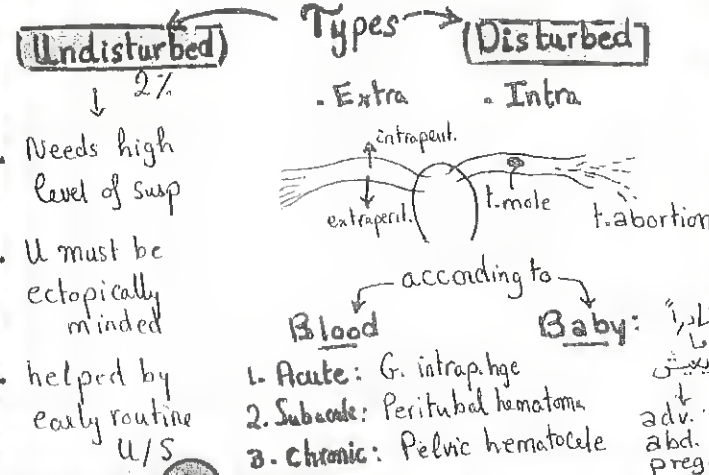 Types
Undisturbed
2%
. Needs high
level of susp
. U must be
ectopically
minded
. helped by
early routine
U/S
Disturbed
. Extra
. Intra
intraperit.
extraperit.
t.mole
t.abortion
according to
Blood
1. Acute: G. intrap.hge
2. Subacute: Peritubal hematoma
3. Chronic: Pelvic hematocele
Baby:
نادراً
ما
يعيش
adv.
abd.
preg